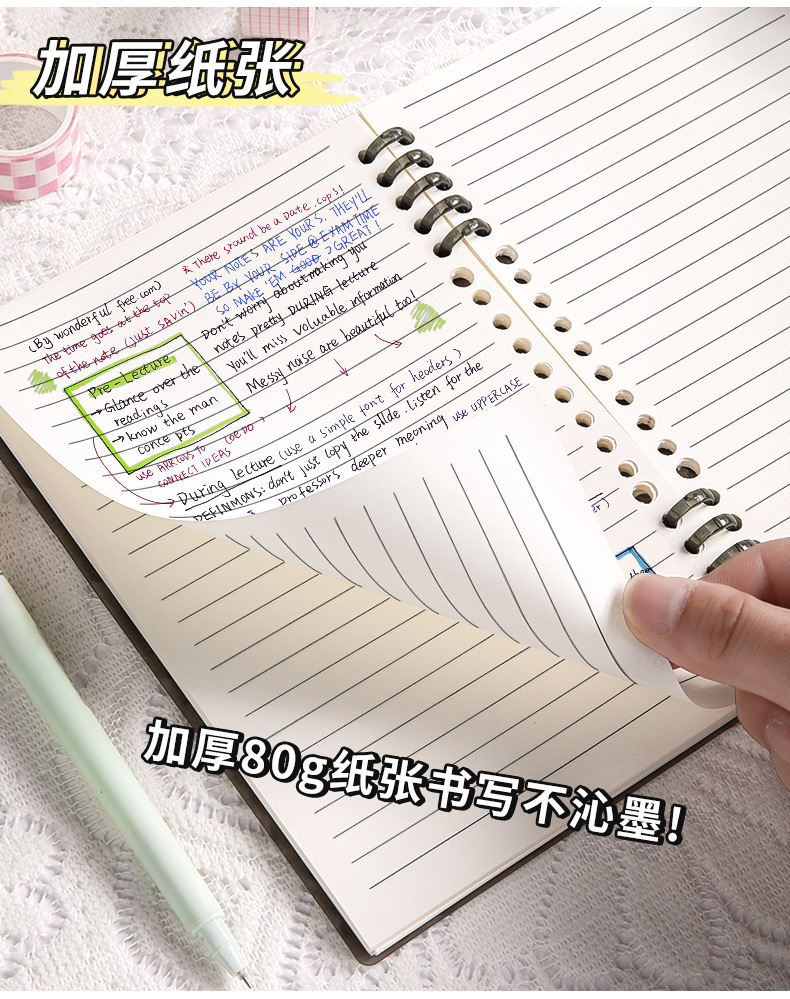 加厚纸张
* There sround be a Date .cops!
YOUR NOTE'S ARE YOURS. THEY'LL
BE BY YOUR SIDE @ EXAM TIME
SO MAKE 'EM GOOD > GREAT!
(By wonderful free.com)
The time goes at the top
of the note (just SAVin')
Don't worry about making you
notes pretty DURING lecture
You'll miss voluable information
Messy noise are beautiful too!
Pre-Lecture
→Glance over the
readings
→know the man
conce pts
use ARROWS to
CONNECT IDEAS
During lecture (use a simple font for headers)
DEFINMONS: don't just copy the slide. listen for the
Professors deeper meoning use UPPERCASE
加厚80g纸张书写不沁墨!